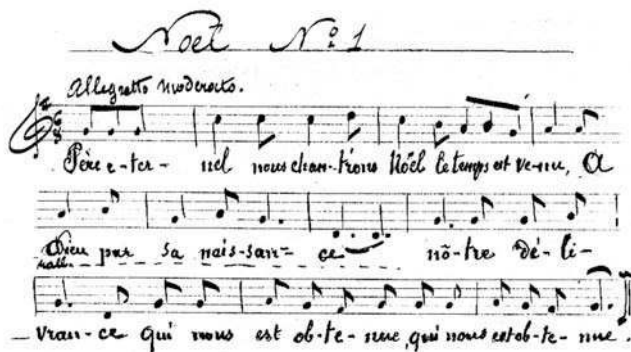 Noël Nº 1
Allegretto moderato.
Père e-ter- nel nous chan-trons Noël le temps est ve-nu, A
Dieu par sa nais-san- ce nô-tre dé-li-
rall.
vran-ce qui nous est ob-te-nue, qui nous est ob-te-nue.